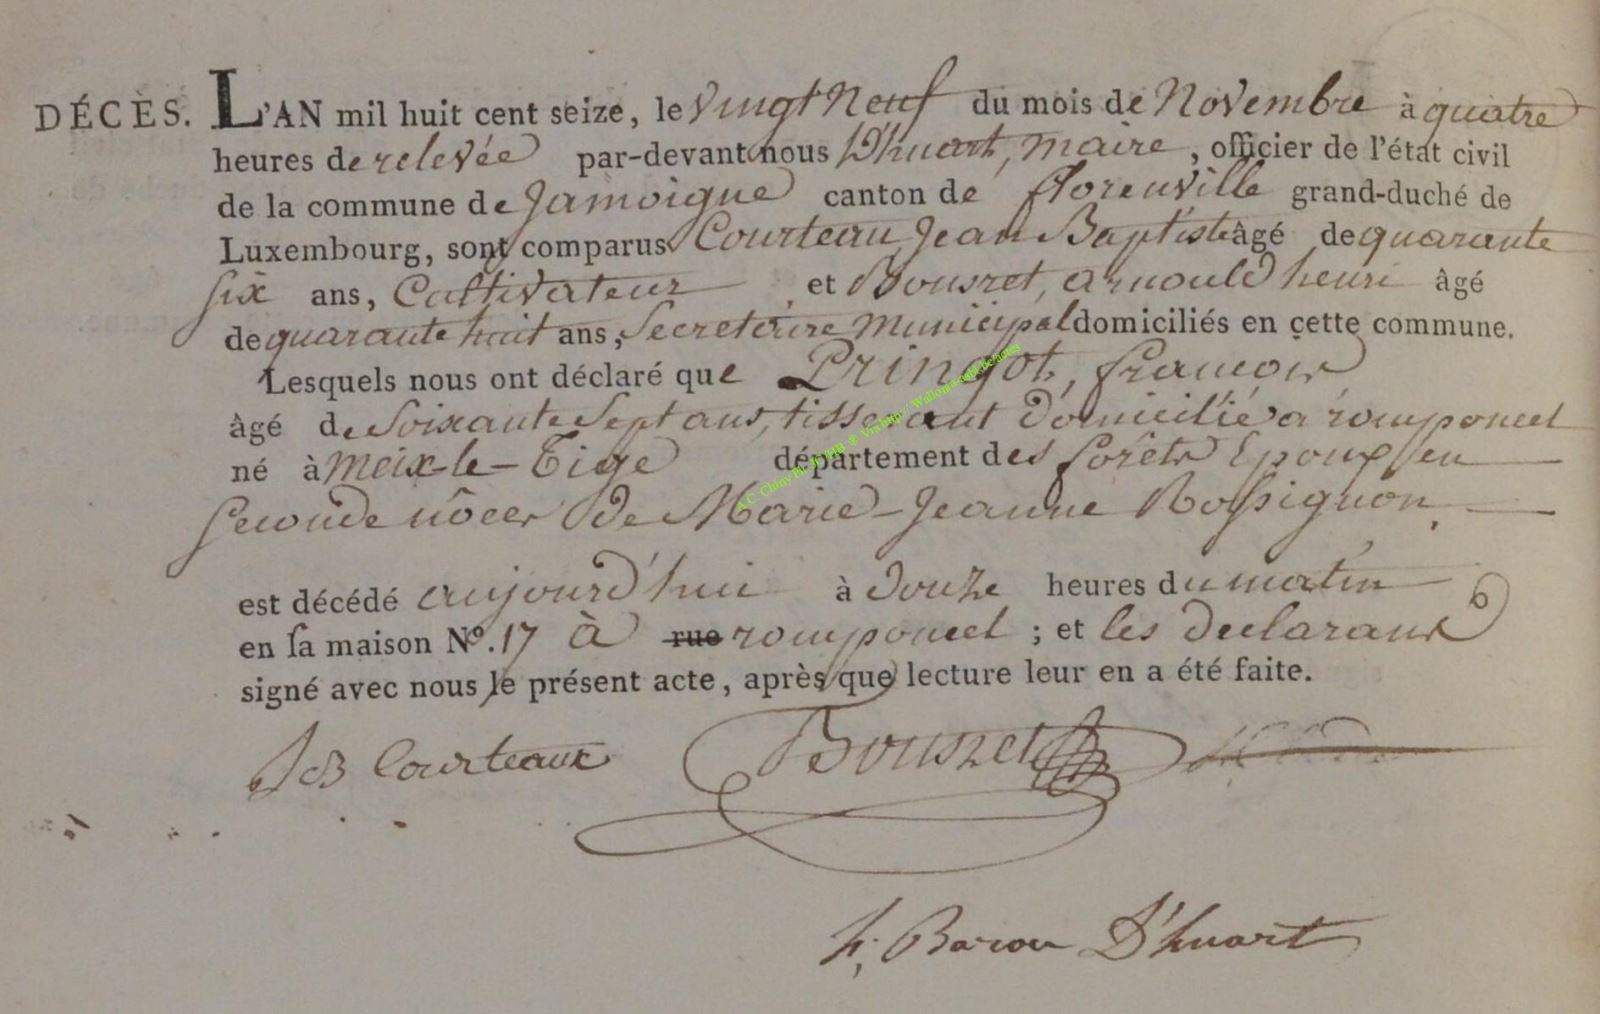 DÉCÈS. L'AN mil huit cent seize, le vingt Neuf du mois de Novembre à quatre
heures de relevée par-devant nous D'huart, maire, officier de l'état civil
de la commune de Jamoigne canton de florenville grand-duché de
Luxembourg, sont comparus Courteau Jean Baptiste âgé de quarante
six ans, Cultivateur et Bouszet, arnould henri âgé
de quarante huit ans, Secretaire Municipal domiciliés en cette commune.
Lesquels nous ont déclaré que Pringot, francois
âgé de soixante Sept ans, tisserant domicilié a romponcel
né à Meix-le-Tige département des forêts Epoux en
seconde nôces de Marie-Jeanne Rossignon.
est décédé aujourd'hui à douze heures du matin
en sa maison Nº. 17 à rue romponcel ; et les declarans
signé avec nous le présent acte, après que lecture leur en a été faite.
JB Courteaux Bouszet
h, Baron D'huart